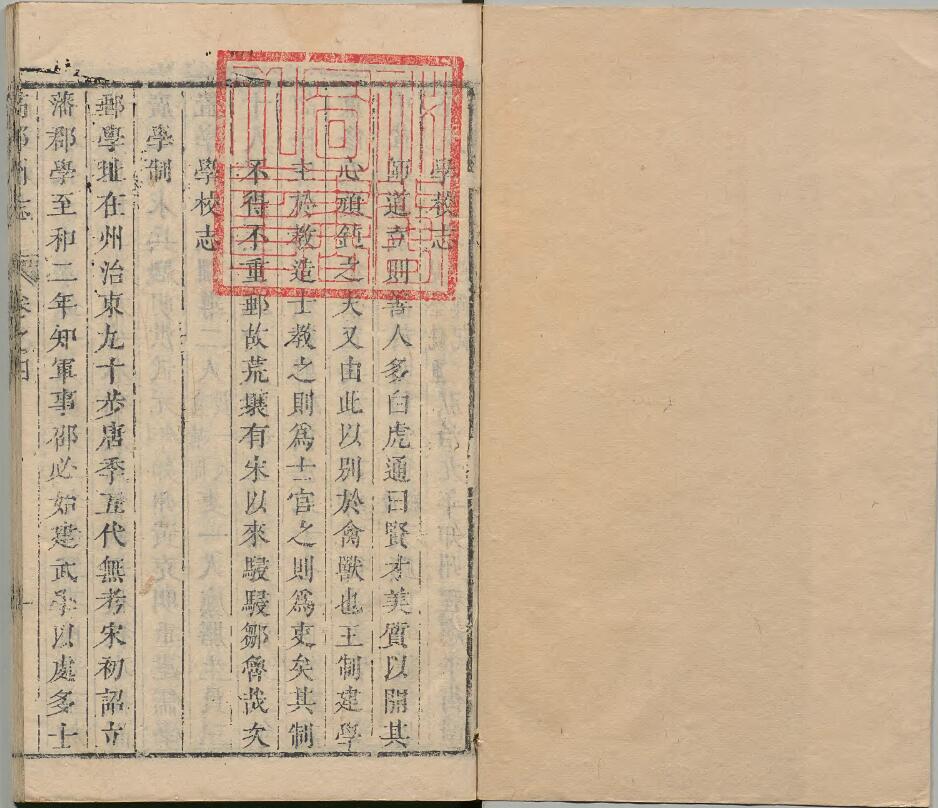 學校志
師道立則善人多白虎通曰賢才美質以開其
心頑鈍之夫又由此以別於禽獸也王制建學
主於教造士教之則爲士官之則爲吏矣其制
不得不重郵故荒壤有宋以來駸駸鄒魯哉次
學校志
學制
郵學址在州治東九十步唐季五代無考宋初詔立
藩郡學至和二年知軍事邵必始建武學以處多士
高郵州志 卷之四 一